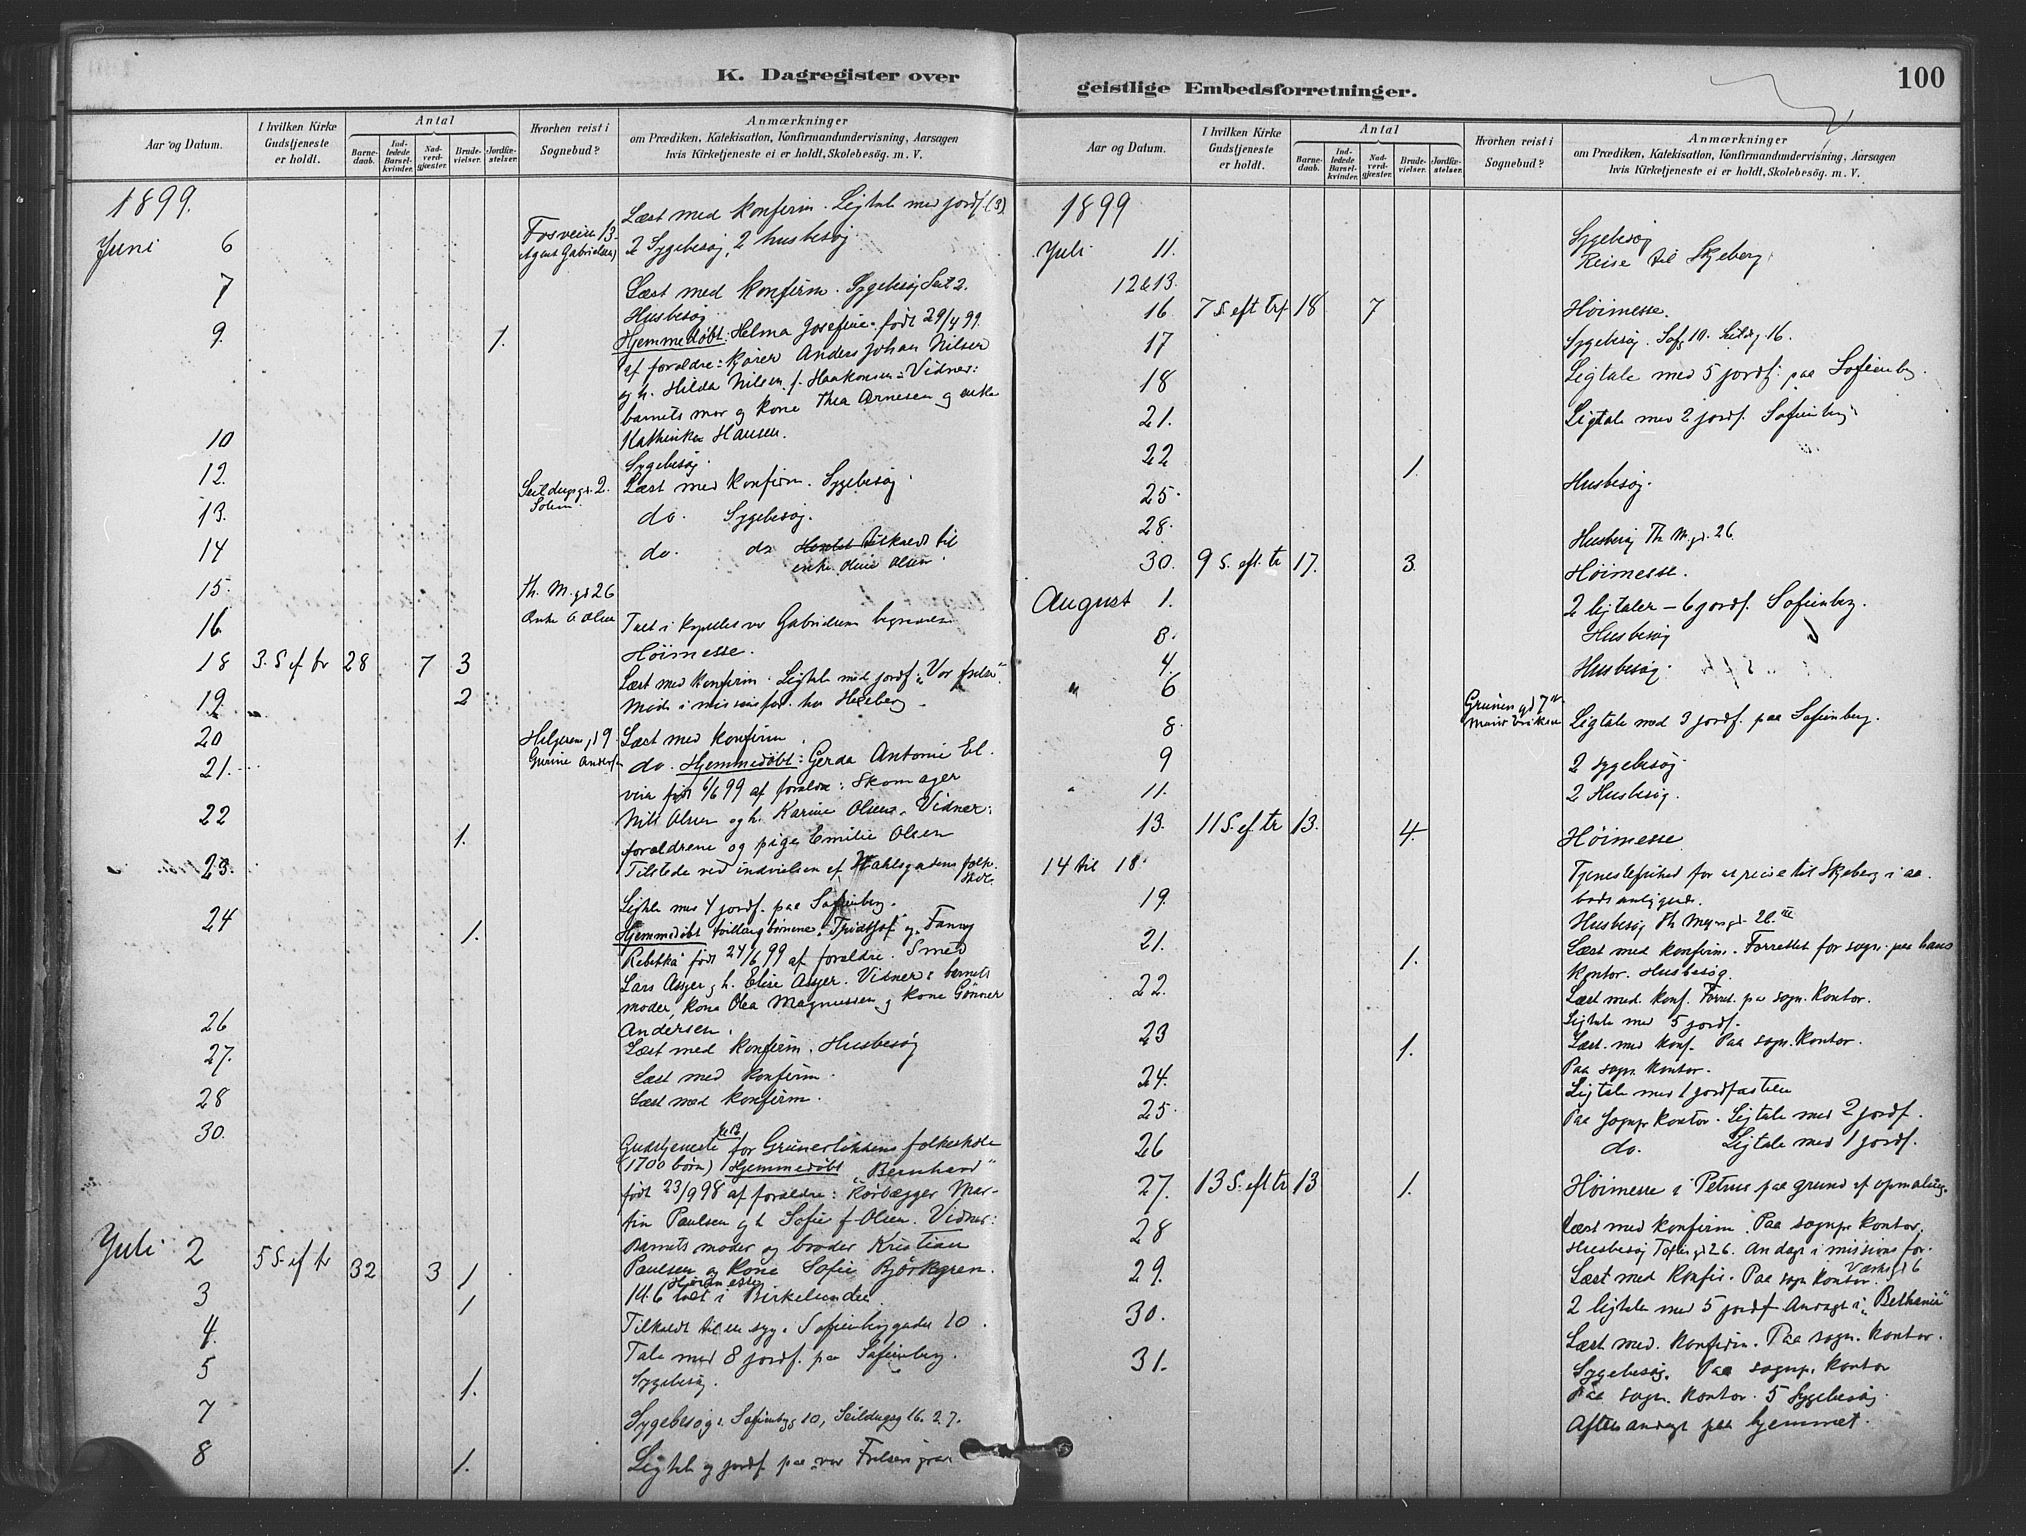 K. Dagregister over
geistlige Embedsforretninger.
100
Aar og Datum.
I hvilken Kirke Gudstjeneste er holdt.
Antal
Barnedaab.
Indledede Barselkvinder.
Nadverdgjæster.
Brudevielser.
Jordfæstelser.
Hvorhen reist i Sognebud?
Anmærkninger
om Prædiken, Katekisation, Konfirmandundervisning, Aarsagen
hvis Kirketjeneste ei er holdt, Skolebesøg. m. V.
1899.
Læst med konfirm. Ligtale med jordf. (3)
Juni 6 Fosveien 13. 2 Sygebesøg, 2 husbesøg
Agent Gabrielsen
7 Læst med konfirm. Sygebesøg Seil 2.
Husbesøg
9. 1. Hjemmedøbt: Helma Josefine født 29/4 99.
af forældre: kjører Anders Johan Nilsen
og h. Hilda Nilsen f. Haakonsen: Vidner:
barnets mor og kone Thea Arnesen og enke
Kathinka Hansen.
10 Sygebesøg.
12. Seildugsgd. 2. Læst med konfirm. Sygebesøg.
13. do. Sygebesøg.
14 do. do tilkaldt til
enke Oline Olsen
15. Th. M. gd 26
Enke O Olsen
16 Talt i kapellet ved Gabrielsens begravelse
18 3. S. ef tr 28 7 3 Høimesse.
19. 2 Læst med konfirm. Ligtale med jordf. "Vor frelser".
Møde i missionsfor. hos Hesberg
20 Helgesens gd 9. Læst med konfirm.
21. do. Hjemmedøbt: Gerda Antonie El-
vira født 6/6 99 af forældre: Skomager
22 Nils Olsen og h. Karine Olsen. Vidner:
1. forældrene og pige Emilie Olsen
23. Tilstede ved indvielsen af Dahlsgadens folke-
skole.
Ligtale med 4 jordf. paa Sofienberg.
24 1. Hjemmedøbt tvillingbørnene "Fridthjof" og "Fanny
Rebekka" født 24/6 99 af forældre. Smed
Lars Asper og h. Elise Asper. Vidner: barnets
moder, kone Olea Magnussen og kone Gønner
Andersen.
26 Læst med konfirm. Husbesøg
27. Læst med konfirm.
28 Læst med konfirm.
30. Gudstjeneste kl 12 for Grünerløkkens folkeskole
(1700 børn) Hjemmedøbt "Bernhard"
født 23/9 98 af forældre: Kørbægger Mar-
tin Paulsen og h Sofie f. Olsen. Vidner:
Barnets moder og broder Kristian
Paulsen og kone Sofie Björkgren.
Juli 2 5 S. ef tr 32 3 1 Høimesse
Kl. 6 talt i Birkelunden
3 1 Tilkaldt til en syg i Sofienberggaden 10.
4. Tale med 8 jordf. paa Sofienberg.
5 1. Sygebesøg.
7 Sygebesøg: Sofienbgg 10, Seildugsg 16. 27.
8 1. Ligtale og jordf. paa vor Frelsers grav
Aar og Datum.
I hvilken Kirke Gudstjeneste er holdt.
Antal
Barnedaab.
Indledede Barselkvinder.
Nadverdgjæster.
Brudevielser.
Jordfæstelser.
Hvorhen reist i Sognebud?
Anmærkninger
om Prædiken, Katekisation, Konfirmandundervisning, Aarsagen
hvis Kirketjeneste ei er holdt, Skolebesøg. m. V.
1899
Juli 11. Sygebesøg
12 & 13. Reise til Skjeberg.
16 7 S. eft trf 18 7 Høimesse.
17 Sygebesøg. Sofg 10. Seildg. 16.
18 Ligtale med 5 jordf. paa Sofienbg.
21. Ligtale med 2 jordf. Sofienberg
22 1.
25. Husbesøg.
28. Husbesøg Th M. gd. 26.
30. 9 S. eft. tr 17. 3 Høimesse.
August 1. 2 ligtaler – 6 jordf. Sofienberg.
3. Husbesøg
4. Husbesøg.
" 6 Grüners gd 7
8. Marie Eriksen Ligtale med 3 jordf. paa Sofienberg.
9 2 sygebesøg.
" 11. 2 Husbesøg.
13. 11 S. ef tr 13. 4. Høimesse
14 til 18. Tjenestefrihed for at reise til Skjeberg i aa-
bodsanliggender.
19. Husbesøg Th Meyersgd. 26.
21. 1. Læst med konfirm. Forrettet for sogn. paa hans
kontor. Husbesøg.
22. Læst med. konf. Forret. paa sogn. kontor.
Ligtale med 5 jordf.
23 1. Læst med konf. Paa sogn. kontor.
24. Paa sogn. kontor.
Ligtale med 1 jordfæstelse
25. Paa sognpr. kontor. Ligtale med 2 jordf.
26 do. Ligtale med 1 jordf.
27. 13 S. eft tr 13 1. Høimesse i Petrus paa grund af opmaling.
28 Læst med konfirm. Paa sognpr kontor.
Husbesøg Toftes gd 26. Andagt i missionsfor.
29. Læst med konfir. Paa sogn kontor.
2 ligtale med 5 jordf. Andagt i "Bethania"
30. Læst med. konfirm. Paa sogn. kontor.
31. Sygebesøg. Paa sognpr. kontor
Paa sogn. kontor. 5 Sygebesøg.
Aftenandagt paa hjemmet.